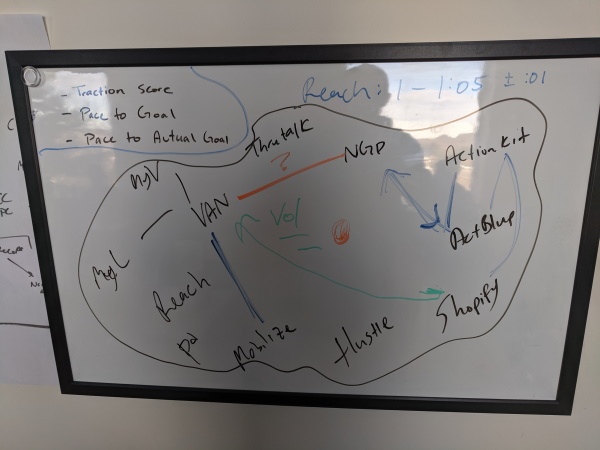 - Traction Score
- Pace to Goal
- Pace to Actual Goal
Reach: 1 - 1:05 ± :01
Thrutalk
?
NGP
ActionKit
MyV
VAN
Vol
ActBlue
MyC
Reach
Shopify
Mobilize
Hustle